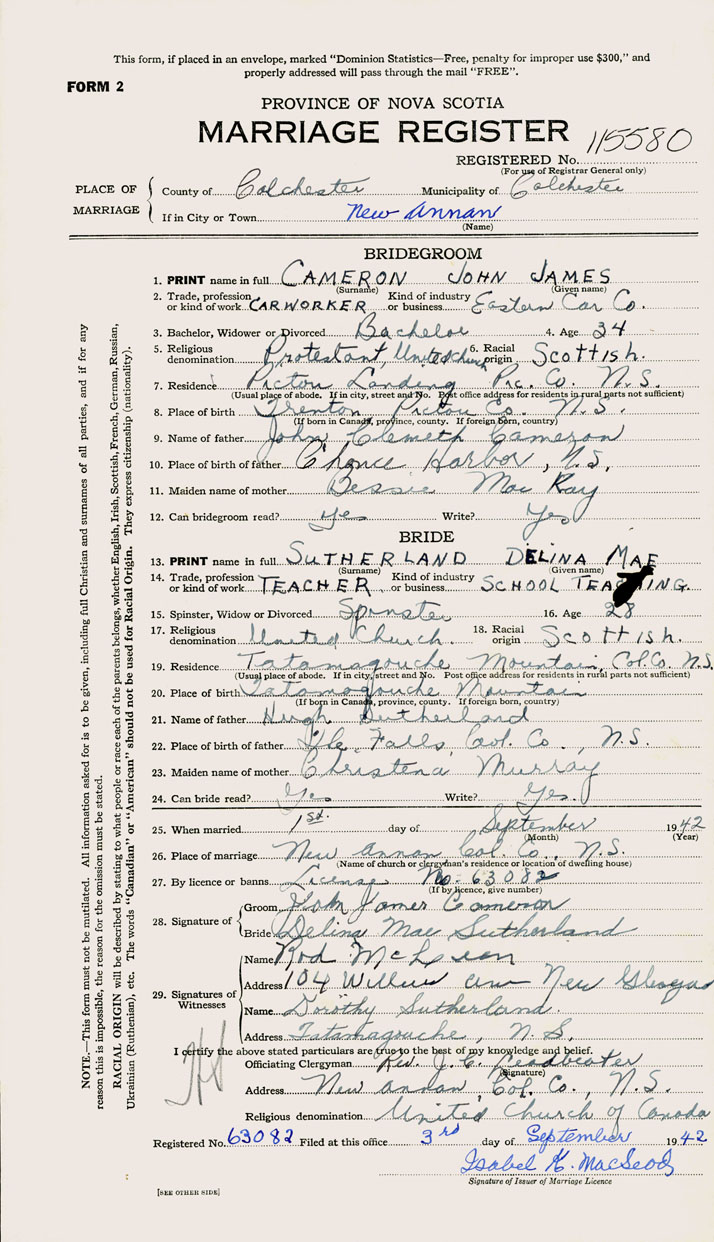 This form, if placed in an envelope, marked "Dominion Statistics—Free, penalty for improper use $300," and
properly addressed will pass through the mail "FREE".
FORM 2
PROVINCE OF NOVA SCOTIA
MARRIAGE REGISTER
115580
REGISTERED No.
(For use of Registrar General only)
PLACE OF MARRIAGE
County of Colchester Municipality of Colchester
If in City or Town New Annan
(Name)
BRIDEGROOM
1. PRINT name in full CAMERON JOHN JAMES
(Surname) (Given name)
2. Trade, profession or kind of work CARWORKER Kind of industry or business Eastern Car Co.
3. Bachelor, Widower or Divorced Bachelor 4. Age 34
5. Religious denomination Protestant, United church 6. Racial origin Scottish.
7. Residence Pictou Landing Pic. Co. N.S.
(Usual place of abode. If in city, street and No. Post office address for residents in rural parts not sufficient)
8. Place of birth Trenton Pictou Co. N.S.
(If born in Canada, province, county. If foreign born, country)
9. Name of father John Cameron
10. Place of birth of father Chance Harbor, N.S.
11. Maiden name of mother Bessie MacKay
12. Can bridegroom read? Yes Write? Yes
BRIDE
13. PRINT name in full SUTHERLAND DELINA MAE
(Surname) (Given name)
14. Trade, profession or kind of work TEACHER Kind of industry or business SCHOOL TEACHING.
15. Spinster, Widow or Divorced Spinster 16. Age 28
17. Religious denomination United Church. 18. Racial origin Scottish.
19. Residence Tatamagouche Mountain, Col. Co. N.S.
(Usual place of abode. If in city, street and No. Post office address for residents in rural parts not sufficient)
20. Place of birth Tatamagouche Mountain
(If born in Canada, province, county. If foreign born, country)
21. Name of father Hugh Sutherland
22. Place of birth of father Falls, Col. Co., N.S.
23. Maiden name of mother Christena Murray
24. Can bride read? Yes Write? Yes.
25. When married 1st. day of September 1942
(Month) (Year)
26. Place of marriage New Annan Col. Co., N.S.
(Name of church or clergyman's residence or location of dwelling house)
27. By licence or banns License No. 63082
(If by licence, give number)
28. Signature of Groom John James Cameron
Bride Delina Mae Sutherland
29. Signatures of Witnesses
Name Rod McLean
Address 104 New Glasgow
Name Dorothy Sutherland.
Address Tatamagouche, N.S.
I certify the above stated particulars are true to the best of my knowledge and belief.
Officiating Clergyman Rev. J. C. Leadbeater
(Signature)
Address New Annan, Col. Co., N.S.
Religious denomination United Church of Canada
Registered No. 63082 Filed at this office 3rd day of September 1942
Isabel K. MacLeod
Signature of Issuer of Marriage Licence
[SEE OTHER SIDE]
NOTE.—This form must not be mutilated. All information asked for is to be given, including full Christian and surnames of all parties, and if for any
reason this is impossible, the reason for the omission must be stated.
RACIAL ORIGIN will be described by stating to what people or race each of the parents belongs, whether English, Irish, Scottish, French, German, Russian,
Ukrainian (Ruthenian), etc. The words "Canadian" or "American" should not be used for Racial Origin. They express citizenship (nationality).